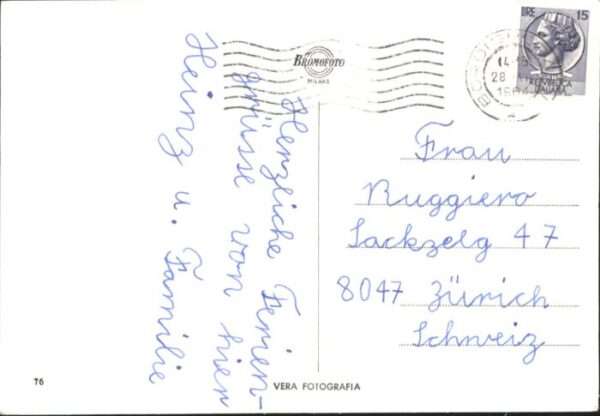 Herzliche Ferien-
grüsse von hier
Heinz u. Familie
BROMOFOTO
MILANO
LIRE 15
Frau
Ruggiero
Sackzelg 47
8047 Zürich
Schweiz
76
VERA FOTOGRAFIA